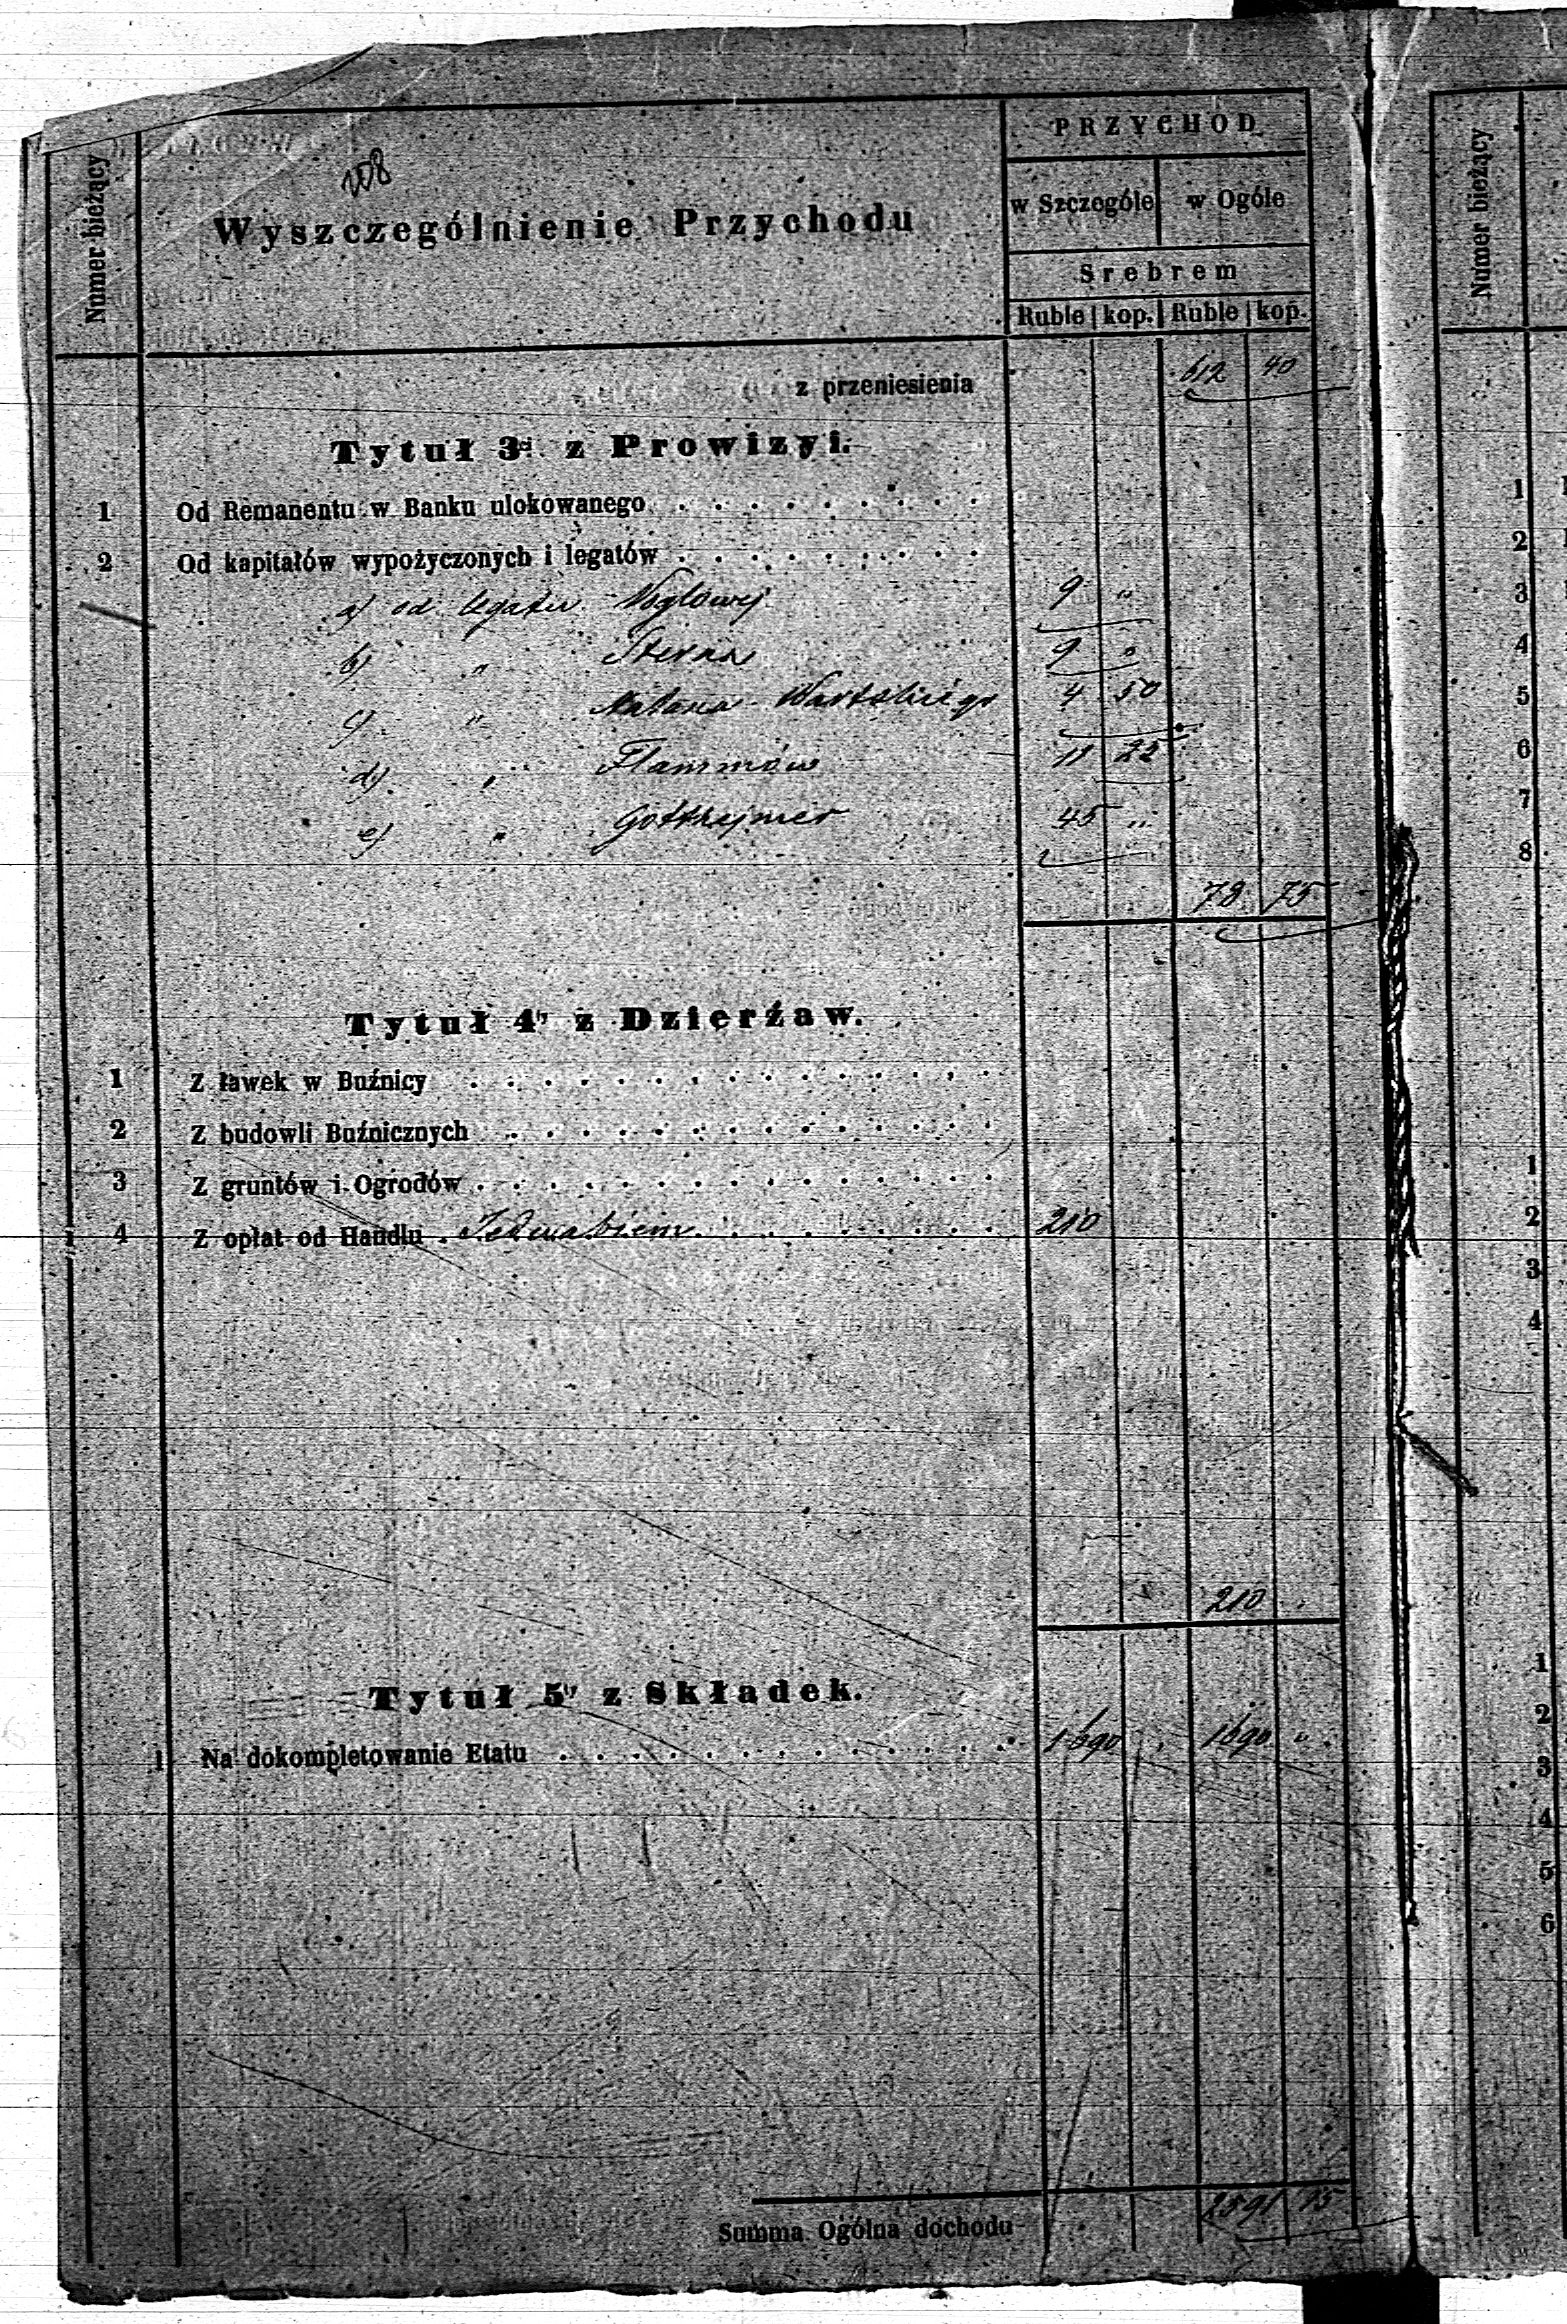 Numer bieżący
208
Wyszczególnienie Przychodu
PRZYCHOD
w Szczególe w Ogóle
Srebrem
Ruble kop. Ruble kop.
z przeniesienia 612 40
Tytuł 3ci z Prowizyi.
1 Od Remanentu w Banku ulokowanego
2 Od kapitałów wypożyczonych i legatów
a) od legatu Voglowej 9 "
b) " Sterna 9 "
c) " Natana Wartskiego 4 50
d) " Flammów 11 25
e) " Gotthejmer 45 "
78 75
Tytuł 4ty z Dzierżaw.
1 Z ławek w Bużnicy
2 Z budowli Bużnicznych
3 Z gruntów i Ogrodów
4 Z opłat od Handlu Jedwabiem 210
210
Tytuł 5ty z Składek.
1 Na dokompletowanie Etatu 1690 " 1690 "
Summa Ogólna dochodu 2591 15
Numer bieżący
1
2
3
4
5
6
7
8
1
2
3
4
1
2
3
4
5
6